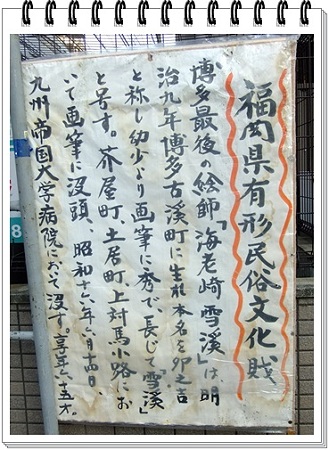 福岡県有形民俗文化財
博多最後の絵師「海老崎雪溪」は明
治九年博多古溪町に生れ本名を卯之吉
と称し幼少より画筆に秀で、長じて「雪溪」
と号す。芥屋町、土居町、上対馬小路にお
いて画筆に没頭、昭和十六年六月十四日、
九州帝国大学病院において没す。享年六十五才。
8